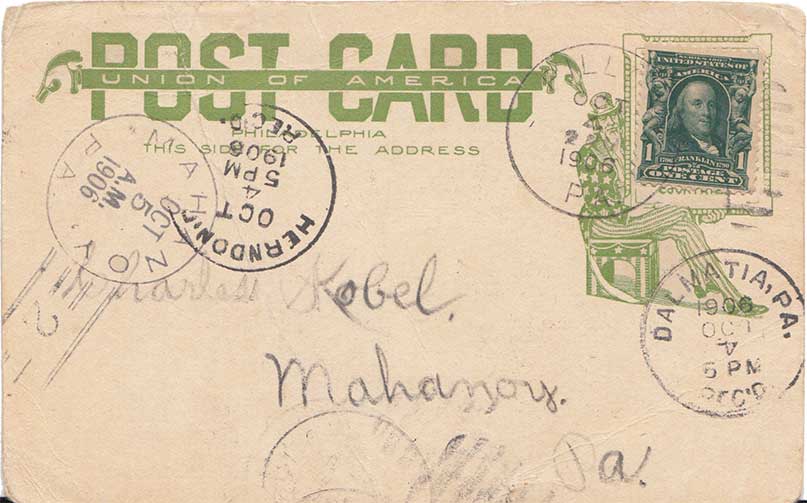 POST CARD
UNION OF AMERICA
PHILADELPHIA
THIS SIDE FOR THE ADDRESS
UNITED STATES OF
AMERICA
1 FRANKLIN 1
POSTAGE
ONE CENT
OCT
4
1906
PA.
HERNDON,
OCT
4
5 PM
1906
REC'D.
OCT
5
A.M.
1906
PA.
2
DALMATIA, PA.
1906
OCT
4
6 PM
REC'D
Charles Kobel.
Mahanoy.
Pa.